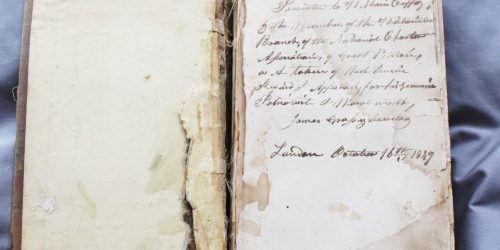 Presented to William Cuffay
By the Members of the Westminster
Branch of the National Charter
Association of Great Britain
as A token of their Sincere
Regard & Approval for his genuine
Patriotism & Moral worth
James Grassby Secretary
London October 16th 1849